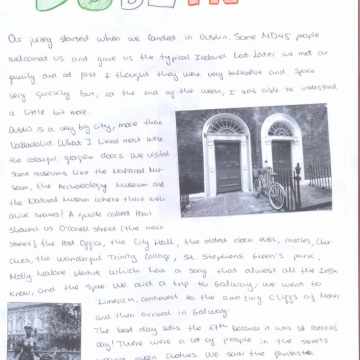 DUBLIN
Our jurney started when we landed in Dublin. Some MD45 people
welcomed us and gave us the typical Iceland hat. Later we met our
family and at first I thought they were very talkative and spoke
very quickly but, at the end of the week, I was able to understand
a little bit more.
Dublin is a very big city, more than
Valladolid. What I liked most were
the colourful georgian doors. We visited
some museums like the National Mu-
seum, the Archaeology Museum and
the Natural Museum where there were
alive snakes! A guide called
showed us O'Conell street (the main
street), the Post Office, the City Hall, the oldest door ever, churches,
the wonderful Trinity College, St. Stephens Green's park,
Molly Malone statue which has a song that almost all the Irish
know, and the Spire. We did a trip to Galway, we went to
Limerick, continued to the amazing Cliffs of Moher
and then arrived in Galway.
The best day still the city because it was St Patrick's
day! There were a lot of people in the streets
green clothes. We saw the